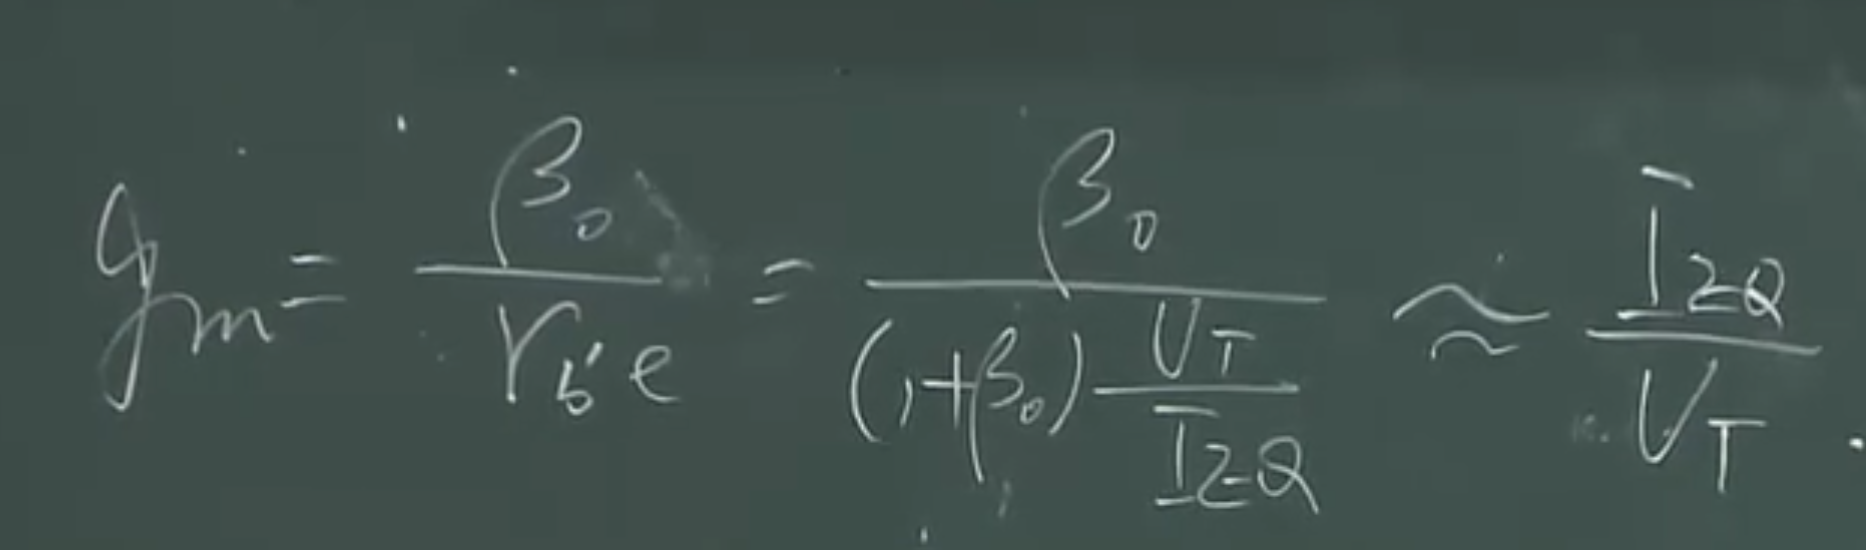 $g_m = \frac{\beta_0}{r_{b'e}} = \frac{\beta_0}{(1+\beta_0)\frac{U_T}{I_{EQ}}} \approx \frac{I_{EQ}}{U_T}$